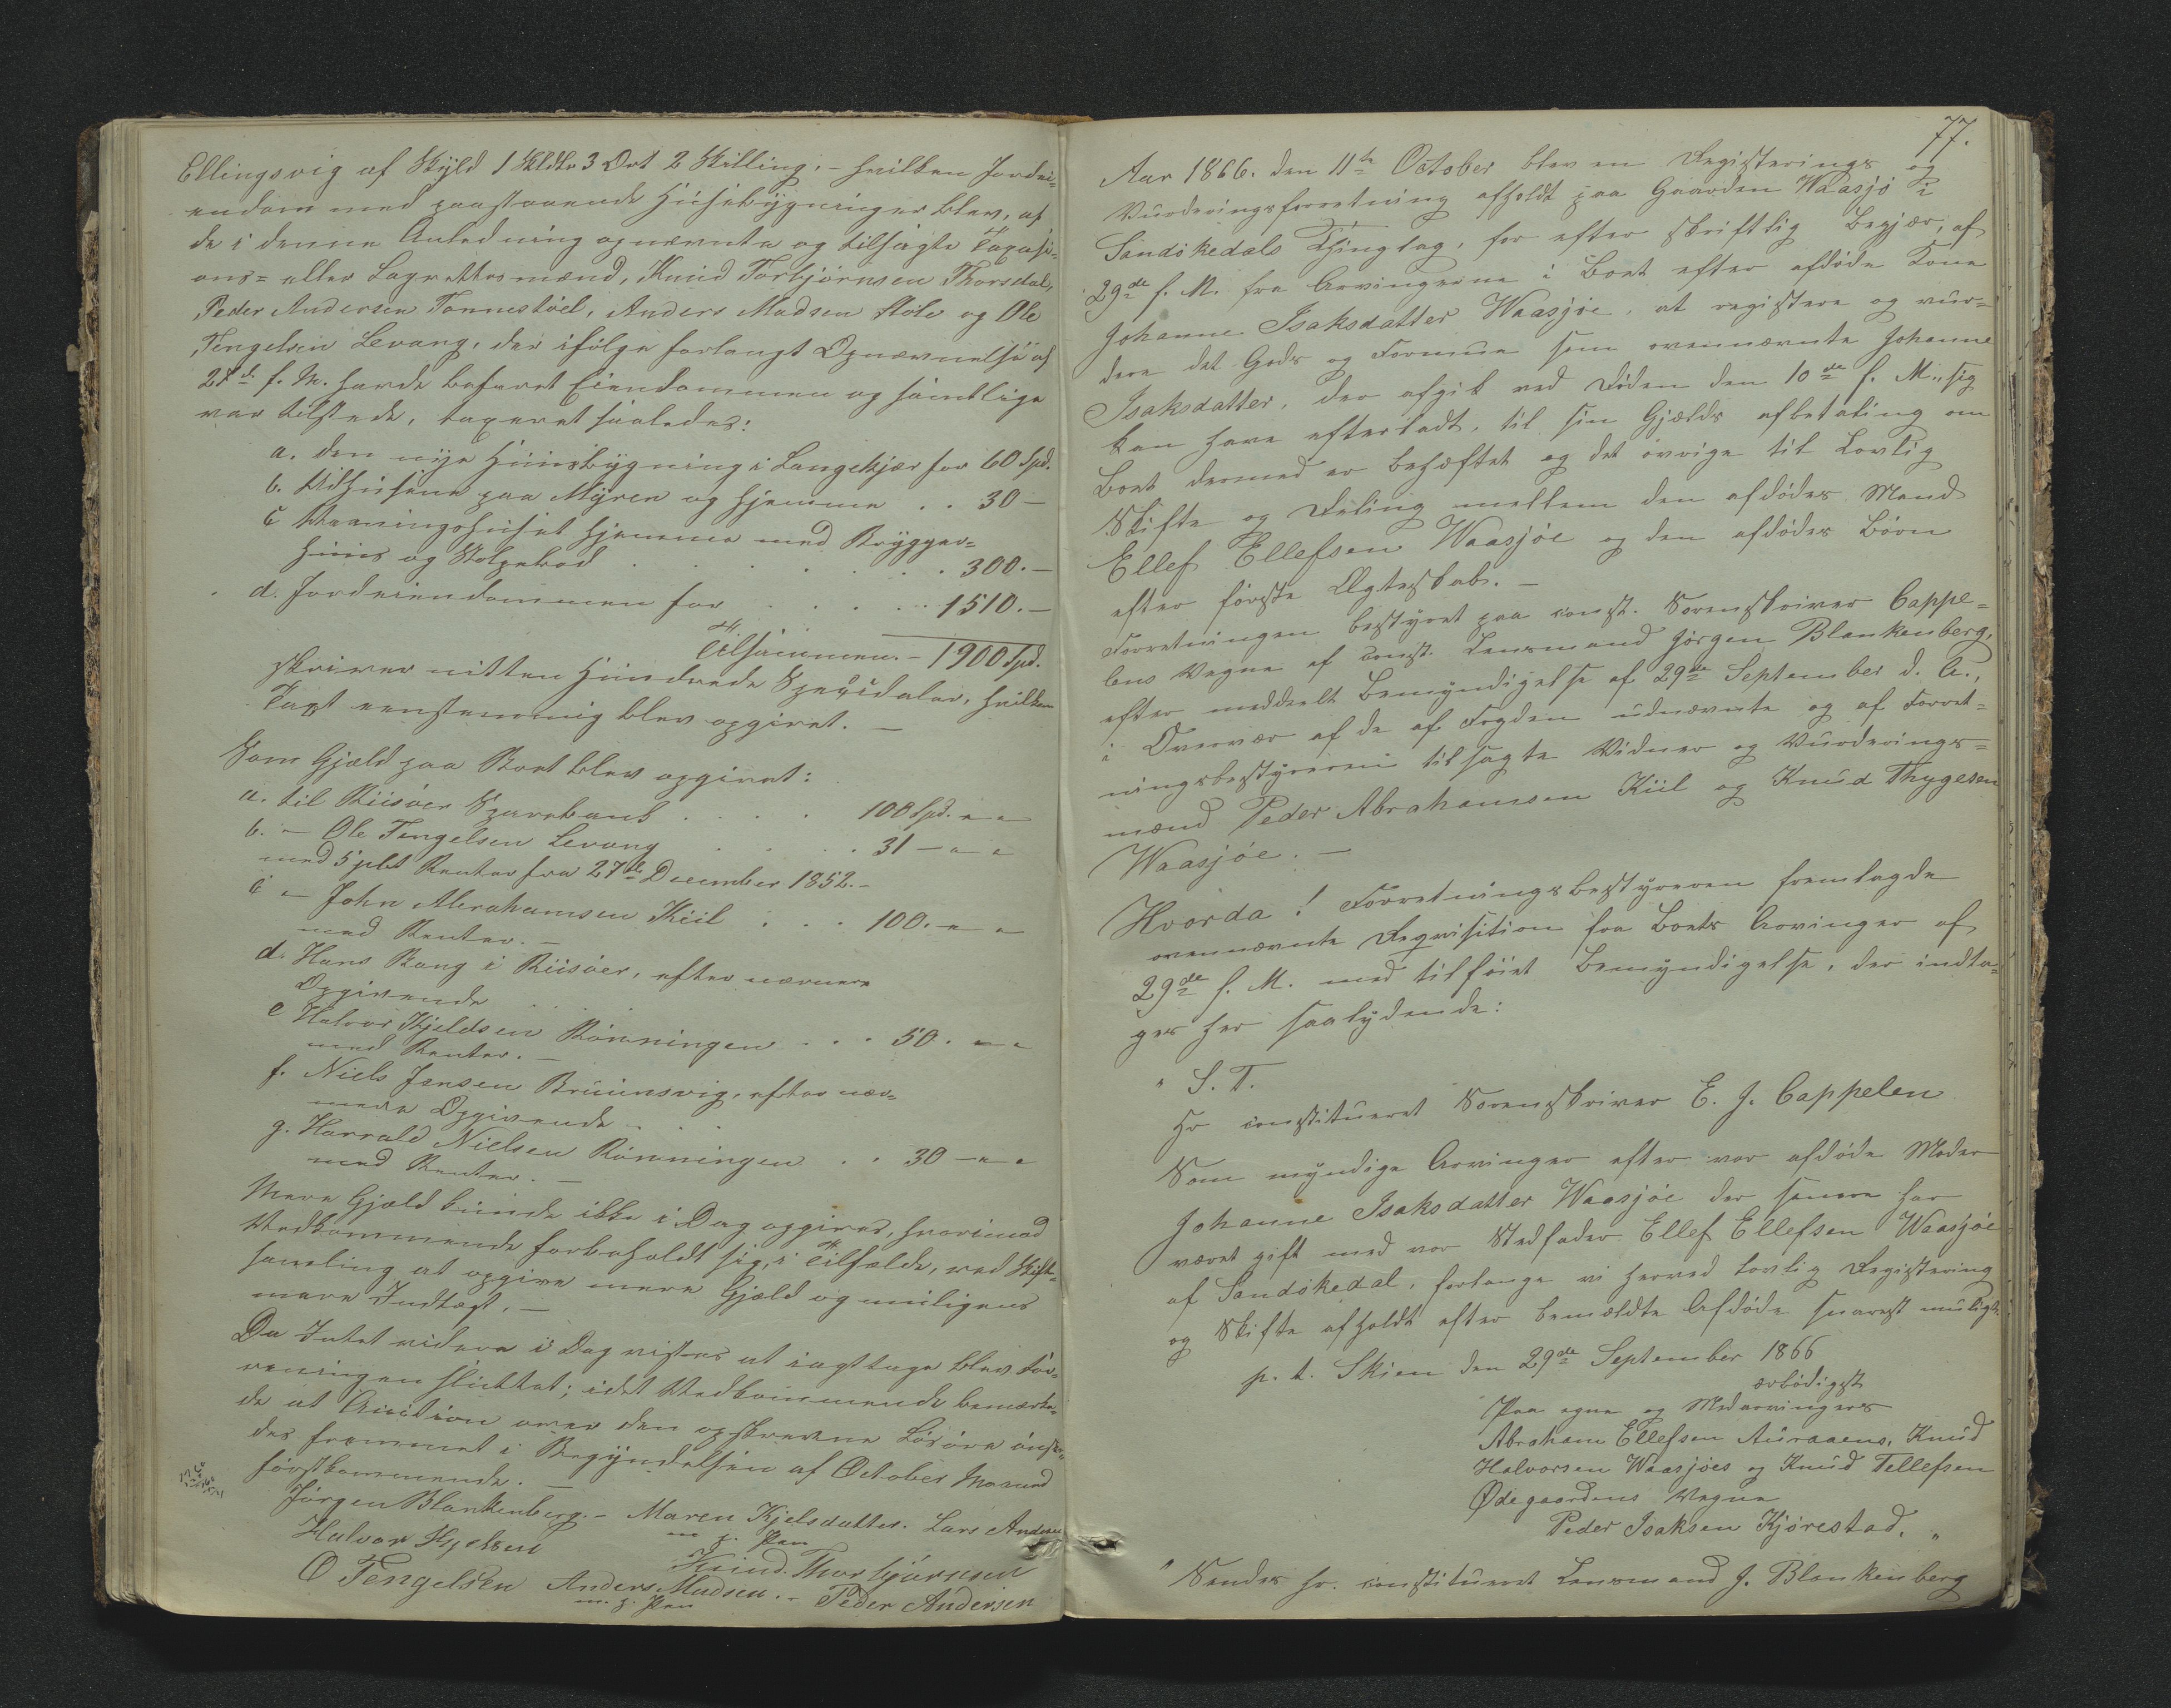 Ellingsvig af Skyld 1 Skldlr 3 Ort 2 Skilling, – hvilken Jordei-
endom med paastaaende Huusbygninger blev, af
de i denne Anledning opnævnte og tilsagte Taxasi-
ons- eller Lagrettesmænd, Knud Torbjørnsen Thorsdal,
Peder Andersen Tonnestøel, Anders Madsen Støle og Ole
Tengelsen Levang, der ifølge forlangt Opnævnelse af
28de f. M. havde befaret Eiendommen og samtlige
var tilstede, taxeret saaledes:
a. den nye Huusbygning i Langekjær for 60 Spd.
b. Udhusene paa Myren og hjemme . . 30 –
c Vaaningshuset hjemme med Brygger-
huus og Stolpebod . . . . . . . 300. –
d. Jordeiendommen for . . . . . 1510. –
Tilsammen. – 1900 Spd.
skriver nitten Hundrede Speciedaler, hvilken
Taxt eenstemmig blev opgivet. –
Som Gjæld paa Boet blev opgivet:
a. til Riisøer Sparebank . . . . 100 Spd. " "
b. – Ole Tengelsen Levang . . . . 31 – " "
med 5 pCt Renter fra 27de December 1852. –
c – John Abrahamsen Kiil . . . 100. – " "
med Renter. –
d. Hans Bang i Riisøer, efter nærmere
Opgivende . . .
e Halvor Kjeldsen Rønningen . . . 50. – " "
med Renter. –
f. Niels Jensen Bruunsvig, efter nær-
mere Opgivende . . .
g. Harrald Nielsen Rønningen . . 30 – " "
med Renter. –
Mere Gjæld kunde ikke i Dag opgives, hvorimod
Vedkommende forbeholdt sig, i Tilfælde, ved Skifte-
samling at opgive mere Gjæld og muligens
mere Indtægt. –
Da Intet videre i Dag vistes at iagttage blev For-
retningen sluttet; idet Vedkommende bemærke-
de at Auction over den opskrevne Løsøre ønske-
des fremmet i Begyndelsen af October Maaned
førstkommende. –
Jørgen Blankenberg. – Maren Kjelsdatter. Lars Andersen
m. p. Pen
Halvor
Knud Thorbjørnsen
O Tengelsen Anders Madsen. – Peder Andersen
m. p. Pen
77.
Aar 1866. den 11te October blev en Registerings og
Vurderingsforretning afholdt paa Gaarden Waasjø i
Sandøkedals Thinglag, for efter skriftlig Begjær, af
29de f. M. fra Arvingerne i Boet efter afdøde Kone
Johanne Isaksdatter Waasjøe, at registere og vur-
dere det Gods og Formue som ovennævnte Johanne
Isaksdatter, der afgik ved Døden den 10de f. M., sig
kan have efterladt, til sin Gjælds afbetaling om
Boet dermed er behæftet og det øvrige til Lovlig
Skifte og Deling mellem den afdødes Mand
Ellef Ellefsen Waasjøe og den afdødes Børn
efter første Ægteskab. –
Forretningen bestyret paa const. Sorenskriver Cappe-
lens Vegne af const. Lensmand Jørgen Blankenberg,
efter meddeelt Bemyndigelse af 29de September d. A.,
i Overvær af de af Fogden udnævnte og af Forret-
ningsbestyreren tilsagte Vidner og Vurderings-
mænd Peder Abrahamsen Kiil og Knud Thygesen
Waasjøe. –
Hvorda! Forretningsbestyreren fremlagde
ovennævnte Reqvisition fra Boets Arvinger af
29de f. M. med tilføiet Bemyndigelse, der indta-
ges her saalydende:
" S. T.
Hr constitueret Sorenskriver E. J. Cappelen
Som myndige Arvinger efter vor afdøde Moder
Johanne Isaksdatter Waasjøe der senere har
været gift med vor Stedfader Ellef Ellefsen Waasjøe
af Sandøkedal, forlange vi herved lovlig Registering
og Skifte afholdt efter bemældte Afdøde snarest muligt.
p. t. Skien den 29de September 1866
ærbødigst
Paa egne og Medarvingers
Abraham Ellefsen Auraaens, Knud
Halvorsen Waasjøes og Knud Tellefsen
Ødegaardens Vegne
Peder Isaksen Kjørestad. "
" Sendes Hr. constitueret Lensmand J. Blankenberg